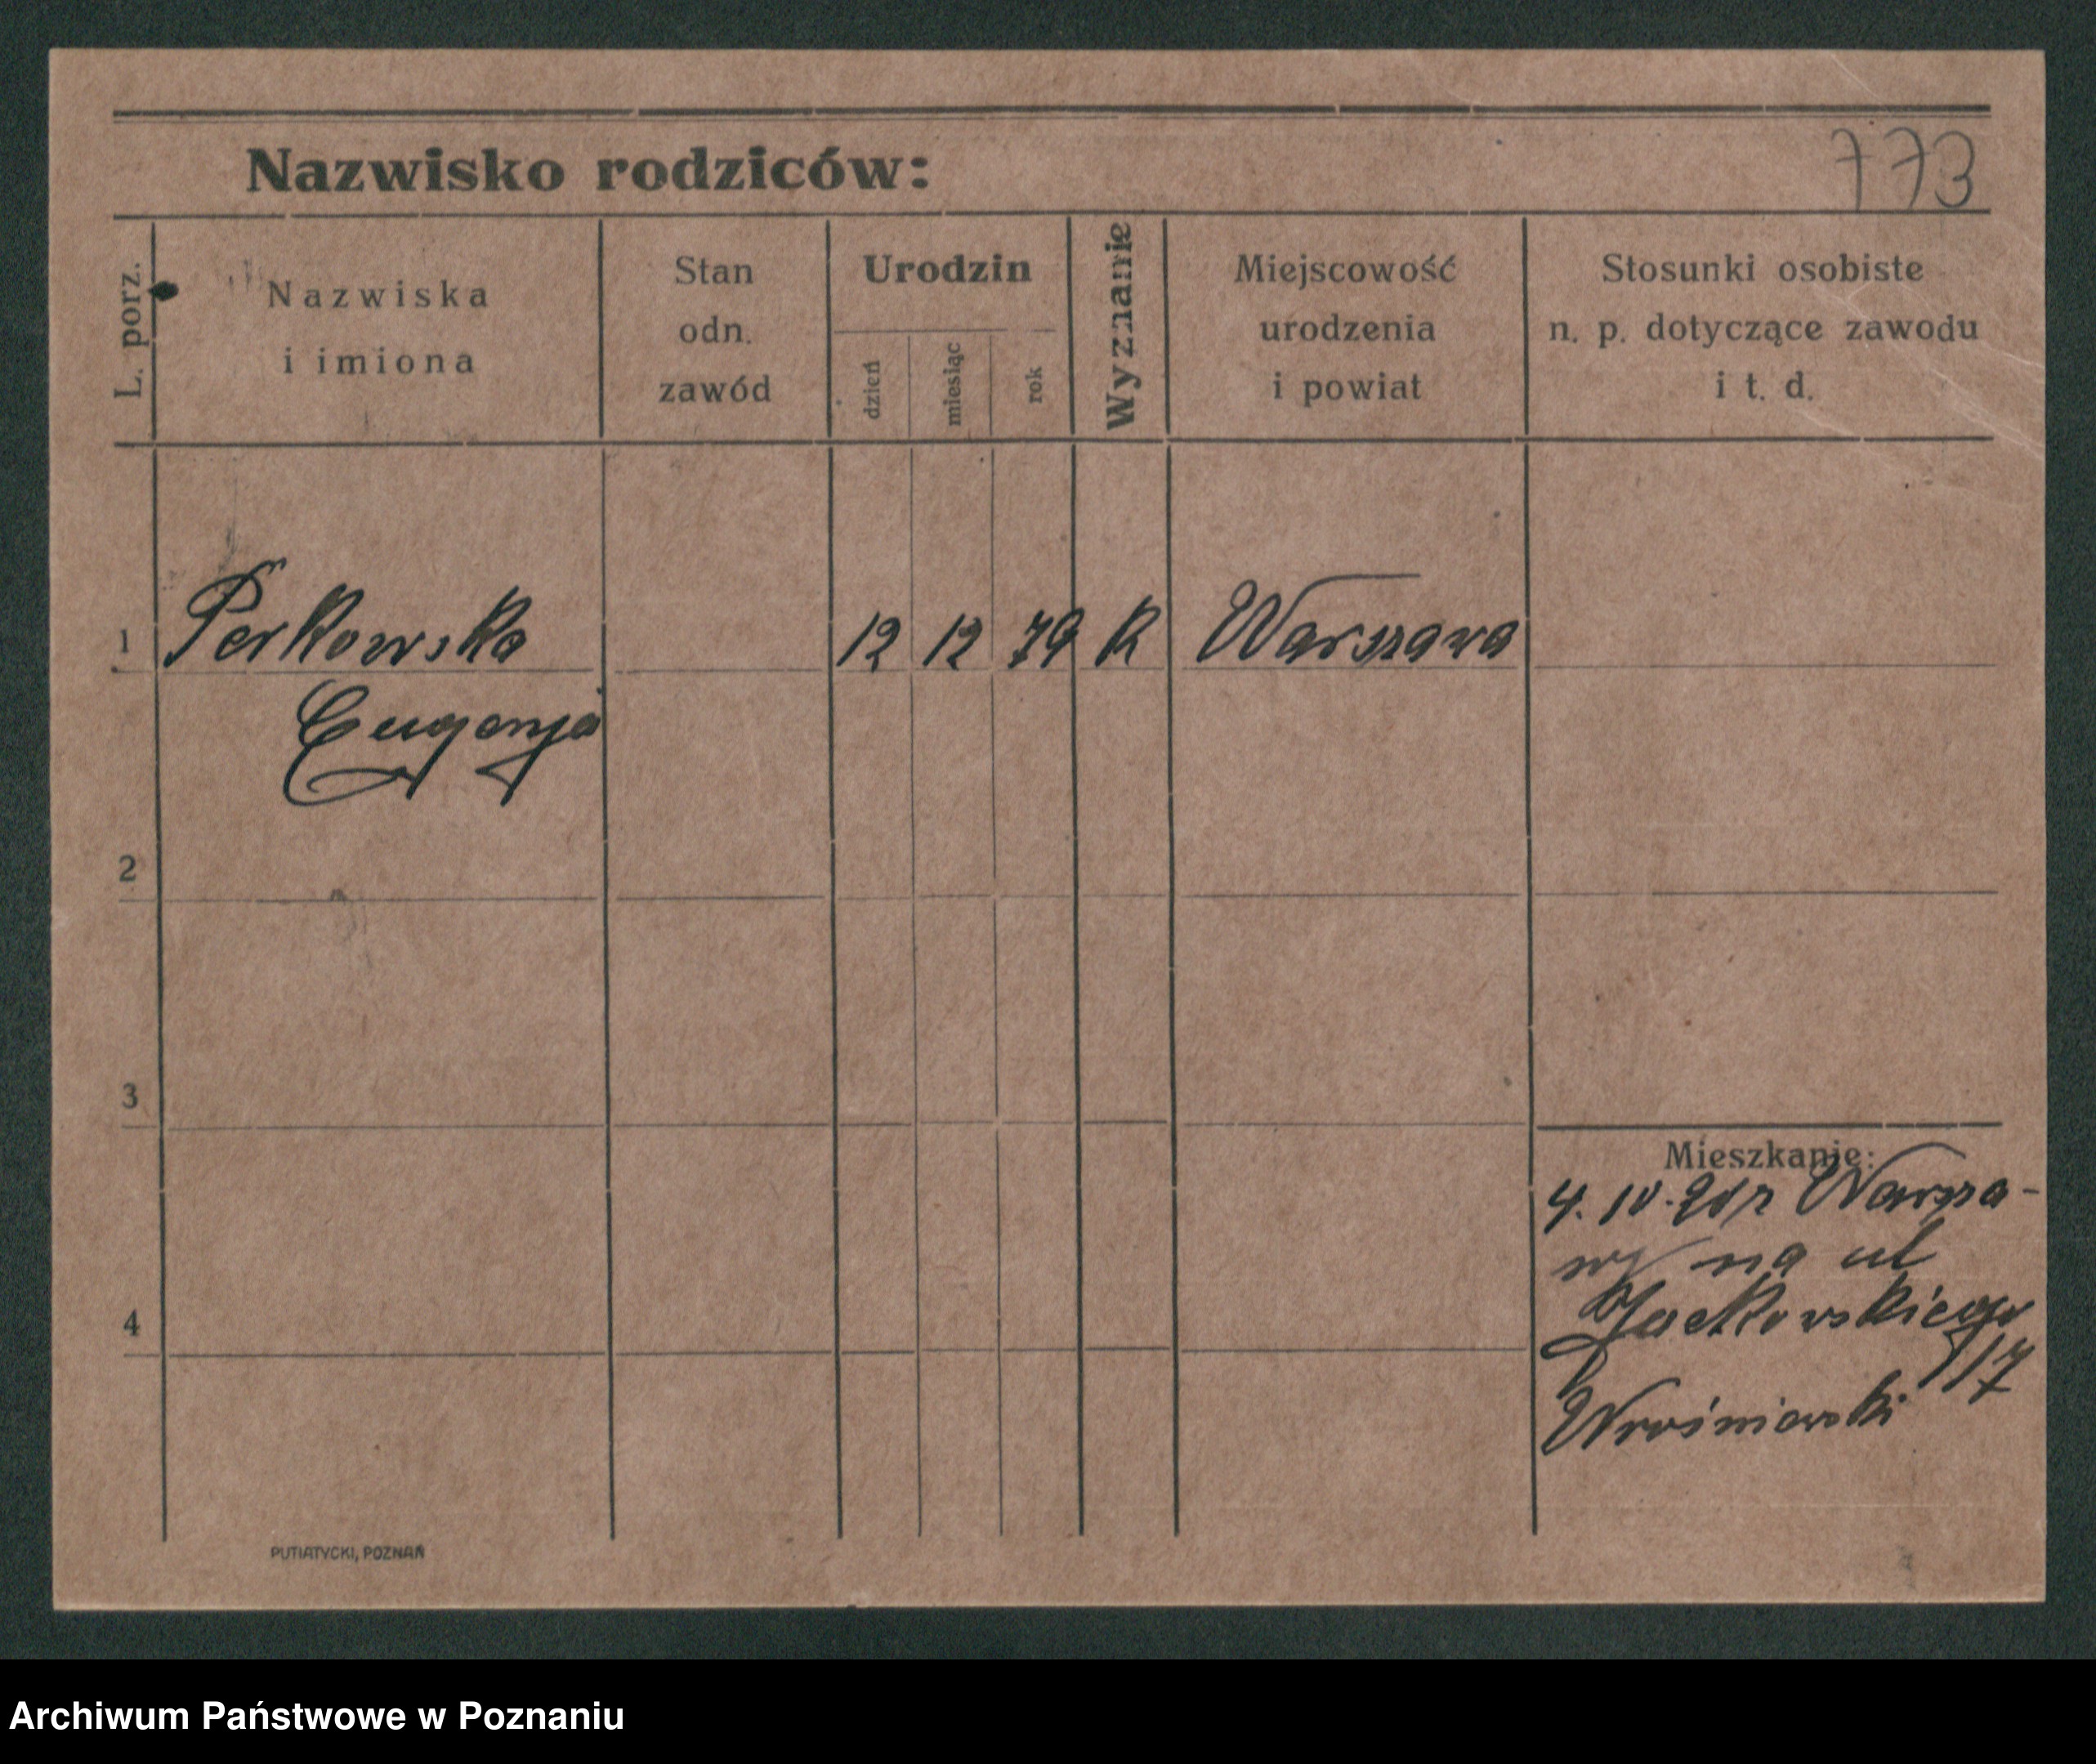 773
Nazwisko rodziców:
L. porz.
Nazwiska
i imiona
Stan
odn.
zawód
Urodzin
dzień
miesiąc
rok
Wyznanie
Miejscowość
urodzenia
i powiat
Stosunki osobiste
n. p. dotyczące zawodu
i t. d.
1 Perkowska 12 12 79 K Warszawa
Eugenja
2
3
4
Mieszkanie:
4. IV. z Warsza-
wy na ul
Jackowskiego
17
PUTIATYCKI, POZNAŃ
Archiwum Państwowe w Poznaniu